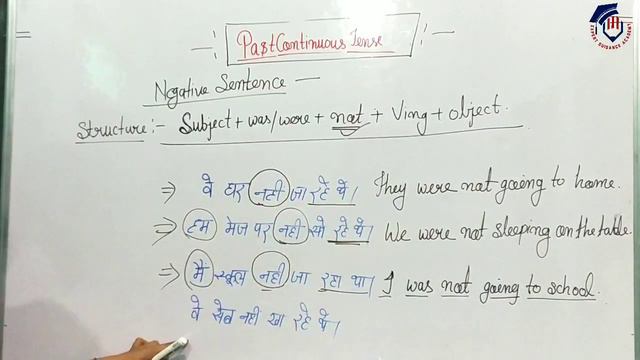 Past Continuous Tense
Negative Sentence —
Structure:- Subject + was/were + not + Ving + object.
⇒ वे घर नहीं जा रहे थे। They were not going to home.
⇒ हम मेज पर नहीं सो रहे थे। We were not sleeping on the table.
⇒ मैं स्कूल नहीं जा रहा था। I was not going to school.
वे सेब नहीं खा रहे थे।
EXPERT GUIDANCE ACADEMY